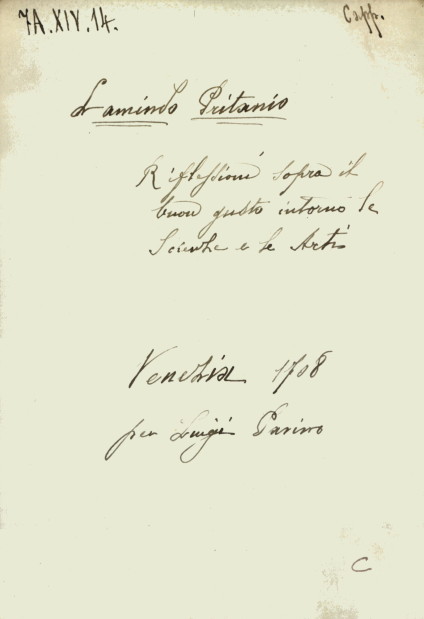 7A.XIV.14.
Capp.
Lamindo Pritanio
Riflessioni sopra il
buon gusto intorno le
Scienze e le Arti
Venezia 1708
per Luigi Pavino
C